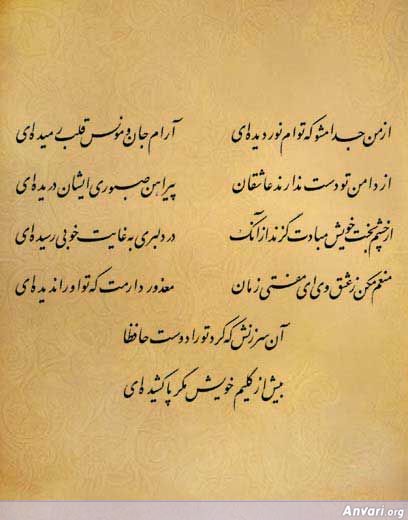 از من جدا مشو که توام نور دیده‌ای آرام جان و مونس قلب رمیده‌ای
از دامن تو دست ندارند عاشقان پیراهن صبوری ایشان دریده‌ای
از چشم بخت خویش مبادت گزند از آنک در دلبری به غایت خوبی رسیده‌ای
منعم مکن ز عشق وی ای مفتی زمان معذور دارمت که تو او را ندیده‌ای
آن سرزنش که کرد تو را دوست حافظا
بیش از گلیم خویش مگر پا کشیده‌ای
Anvari.org